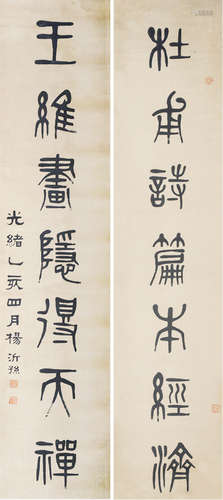 杜甫詩篇本經濟
王維畫隱得天禪
光緒乙亥四月楊沂孫